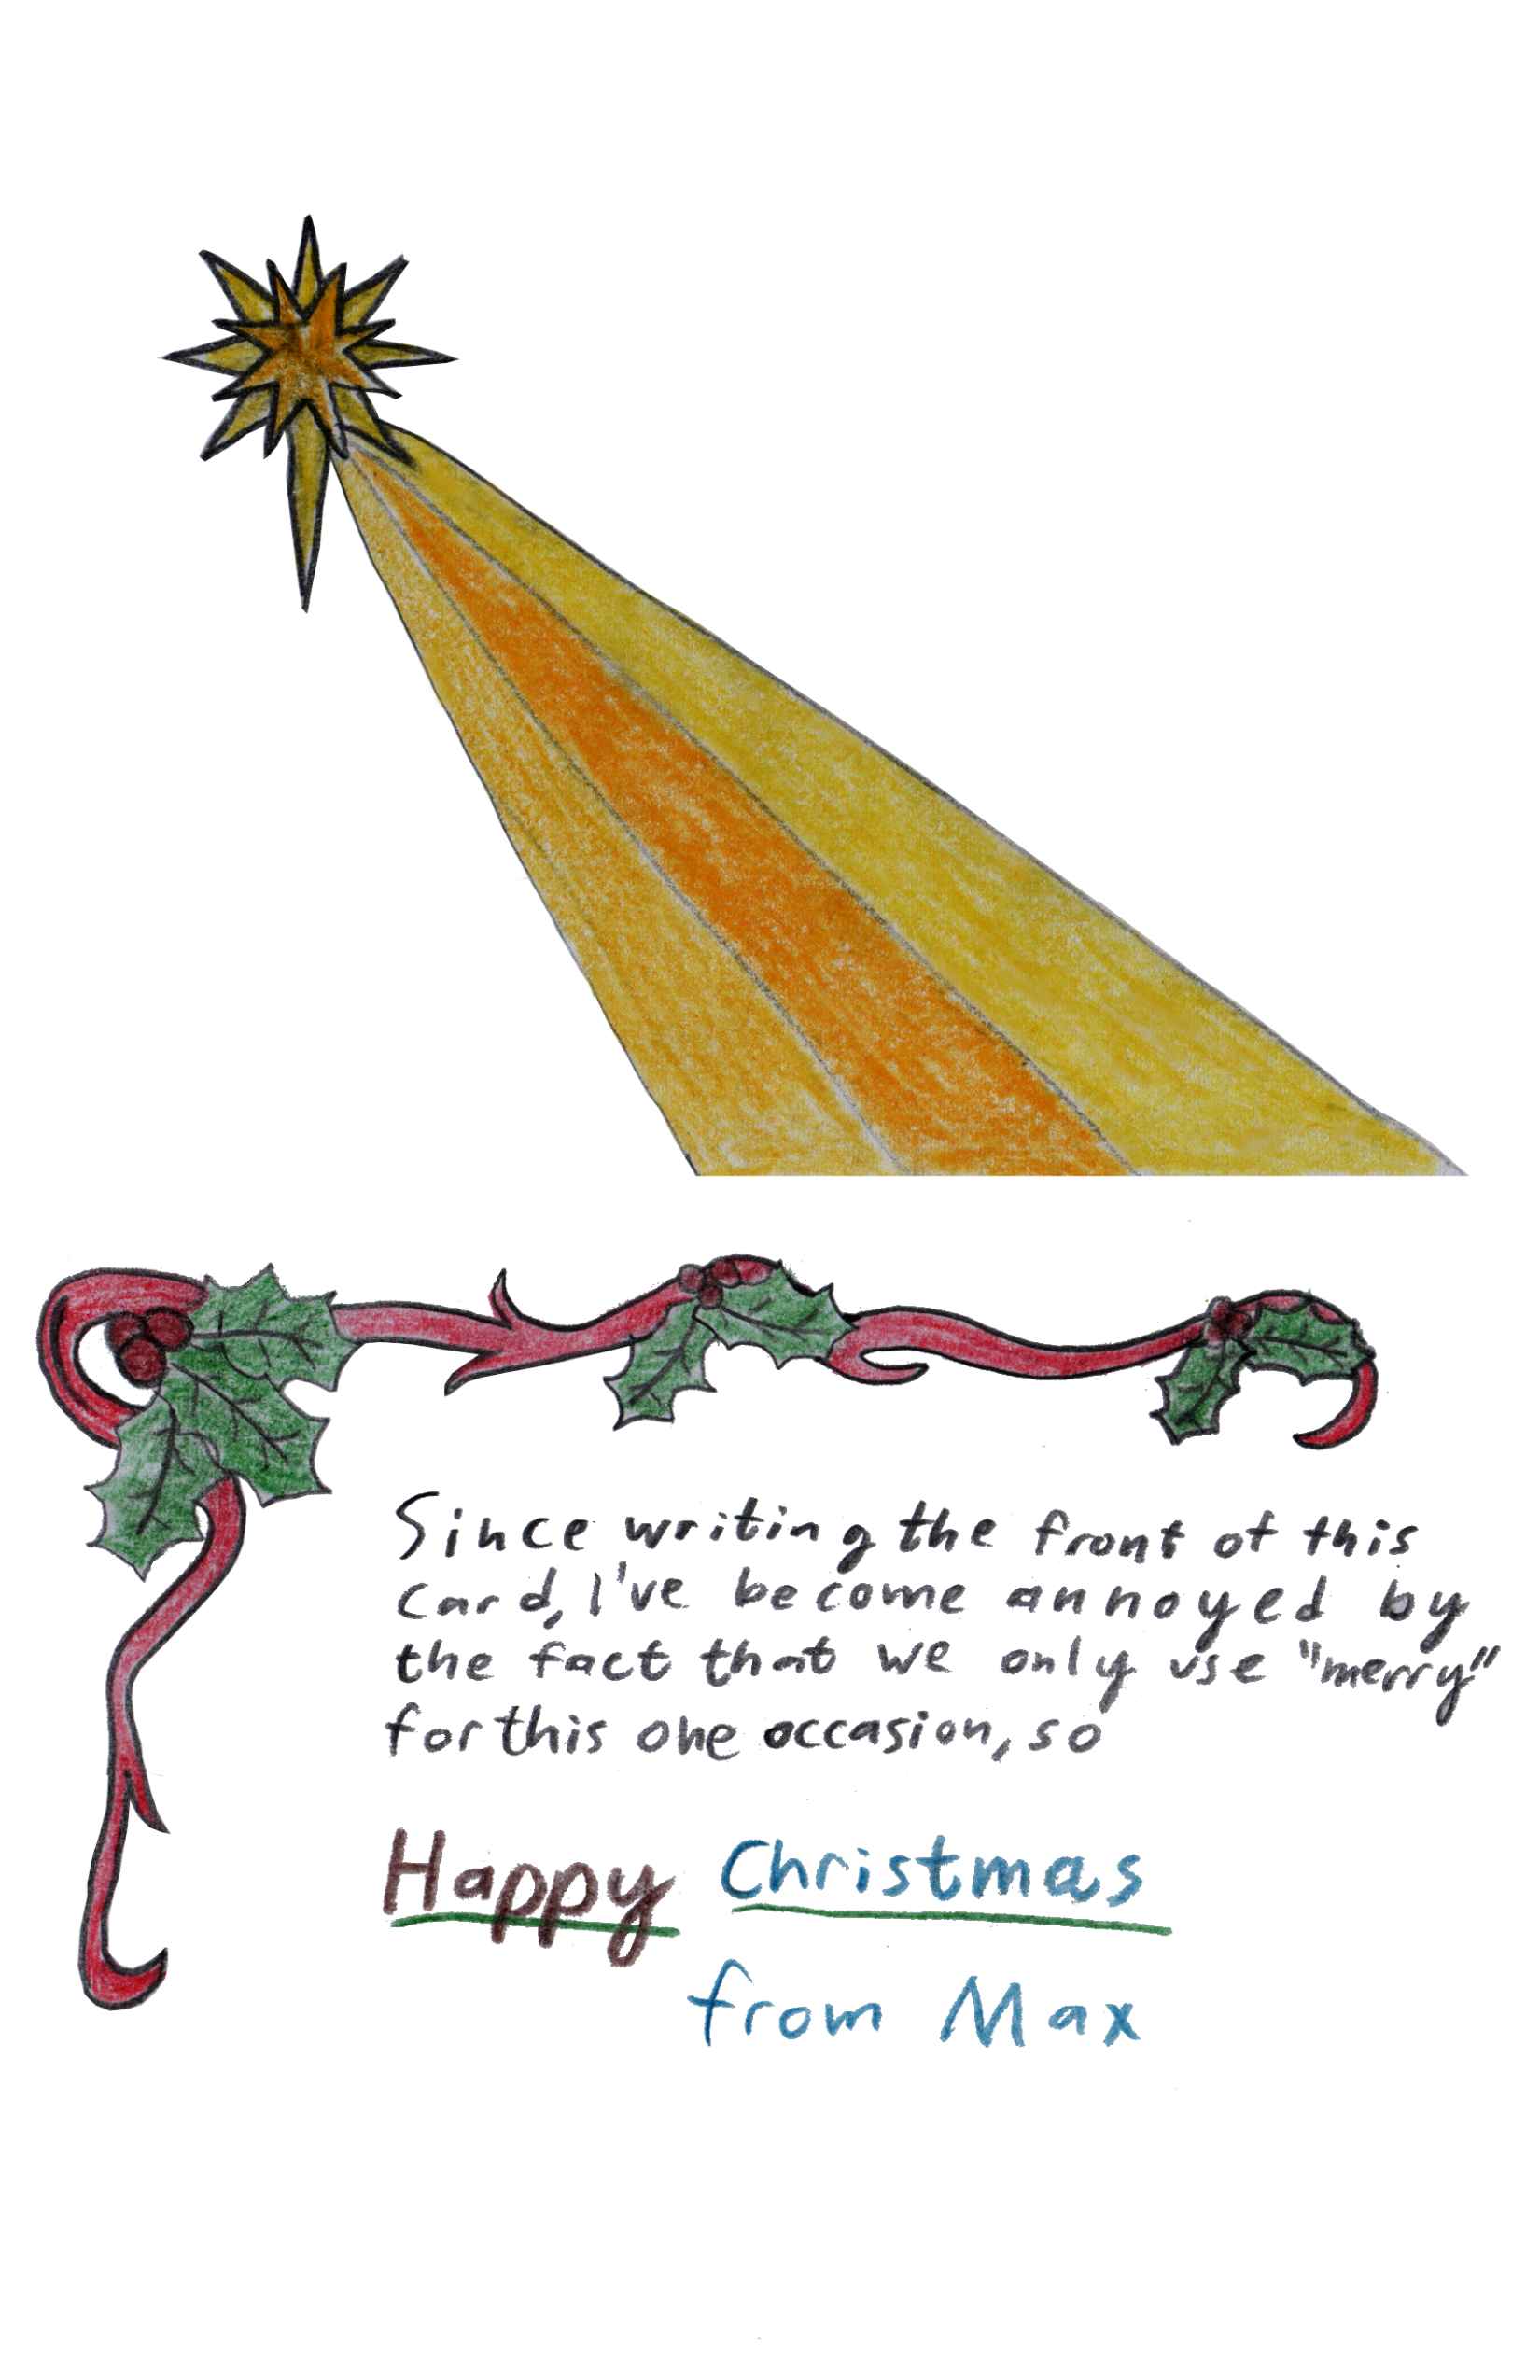 Since writing the front of this
card, I've become annoyed by
the fact that we only use "merry"
for this one occasion, so
Happy Christmas
from Max